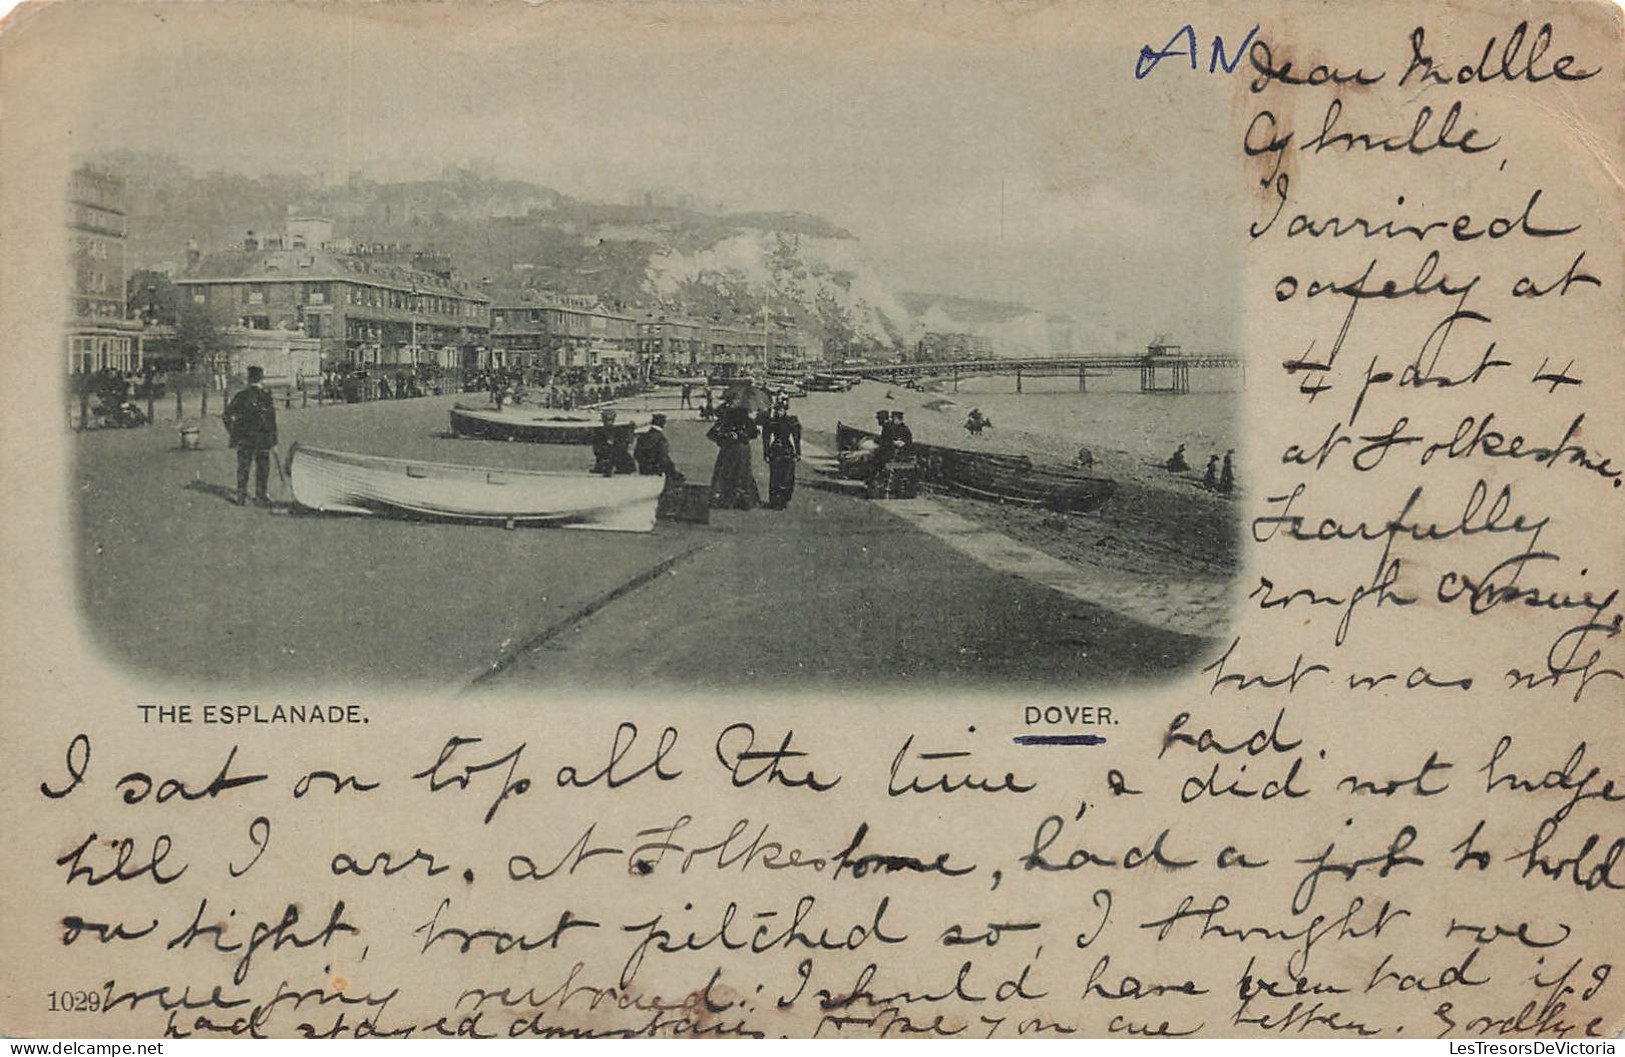 AN
Dear Mdlle
I arrived
safely at
1/4 past 4
at Folkestone.
Fearfully
rough crossing,
but was not
bad.
THE ESPLANADE.
DOVER.
I sat on top all the time, & did not budge
till I arr. at Folkestone, had a job to hold
on tight, boat pitched so, I thought we
were going overboard. I should have been bad if I
1029
had stayed downstairs. Hope you are better. Goodbye
LesTresorsDeVictoria
www.delcampe.net